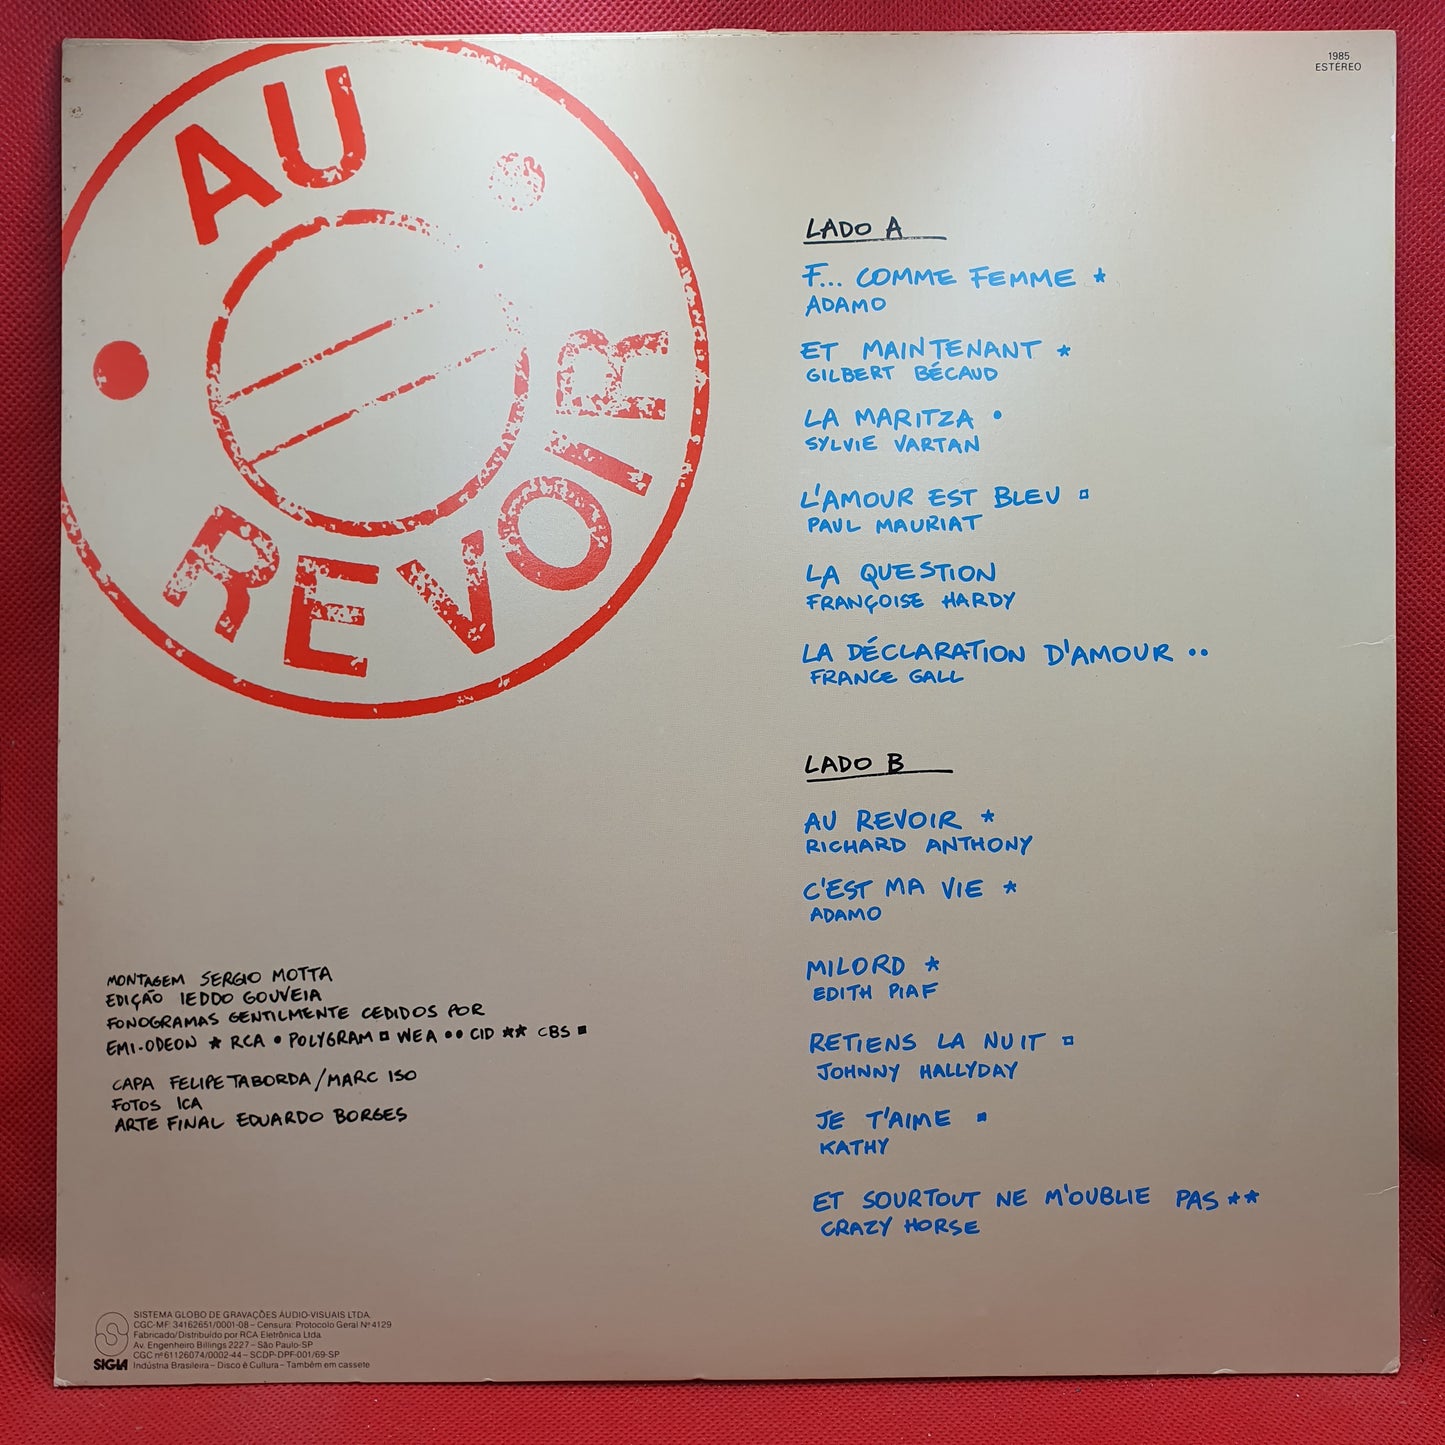 AU
REVOIR
1985
ESTÉREO
LADO A
F... COMME FEMME *
ADAMO
ET MAINTENANT *
GILBERT BÉCAUD
LA MARITZA •
SYLVIE VARTAN
L'AMOUR EST BLEU ▫
PAUL MAURIAT
LA QUESTION
FRANÇOISE HARDY
LA DÉCLARATION D'AMOUR ••
FRANCE GALL
LADO B
AU REVOIR *
RICHARD ANTHONY
C'EST MA VIE *
ADAMO
MILORD *
EDITH PIAF
RETIENS LA NUIT ▫
JOHNNY HALLYDAY
JE T'AIME ▪
KATHY
ET SOURTOUT NE M'OUBLIE PAS **
CRAZY HORSE
MONTAGEM SERGIO MOTTA
EDIÇÃO IEDDO GOUVEIA
FONOGRAMAS GENTILMENTE CEDIDOS POR
EMI-ODEON * RCA • POLYGRAM ▫ WEA •• CID ** CBS ▪
CAPA FELIPE TABORDA/MARC ISO
FOTOS ICA
ARTE FINAL EDUARDO BORGES
SIGLA
SISTEMA GLOBO DE GRAVAÇÕES ÁUDIO-VISUAIS LTDA.
CGC-MF: 34162651/0001-08 – Censura: Protocolo Geral Nº 4129
Fabricado/Distribuído por RCA Eletrônica Ltda
Av. Engenheiro Billings 2227 – São Paulo-SP
CGC nº 61126074/0002-44 – SCDP-DPF-001/69-SP
Indústria Brasileira – Disco é Cultura – Também em cassete